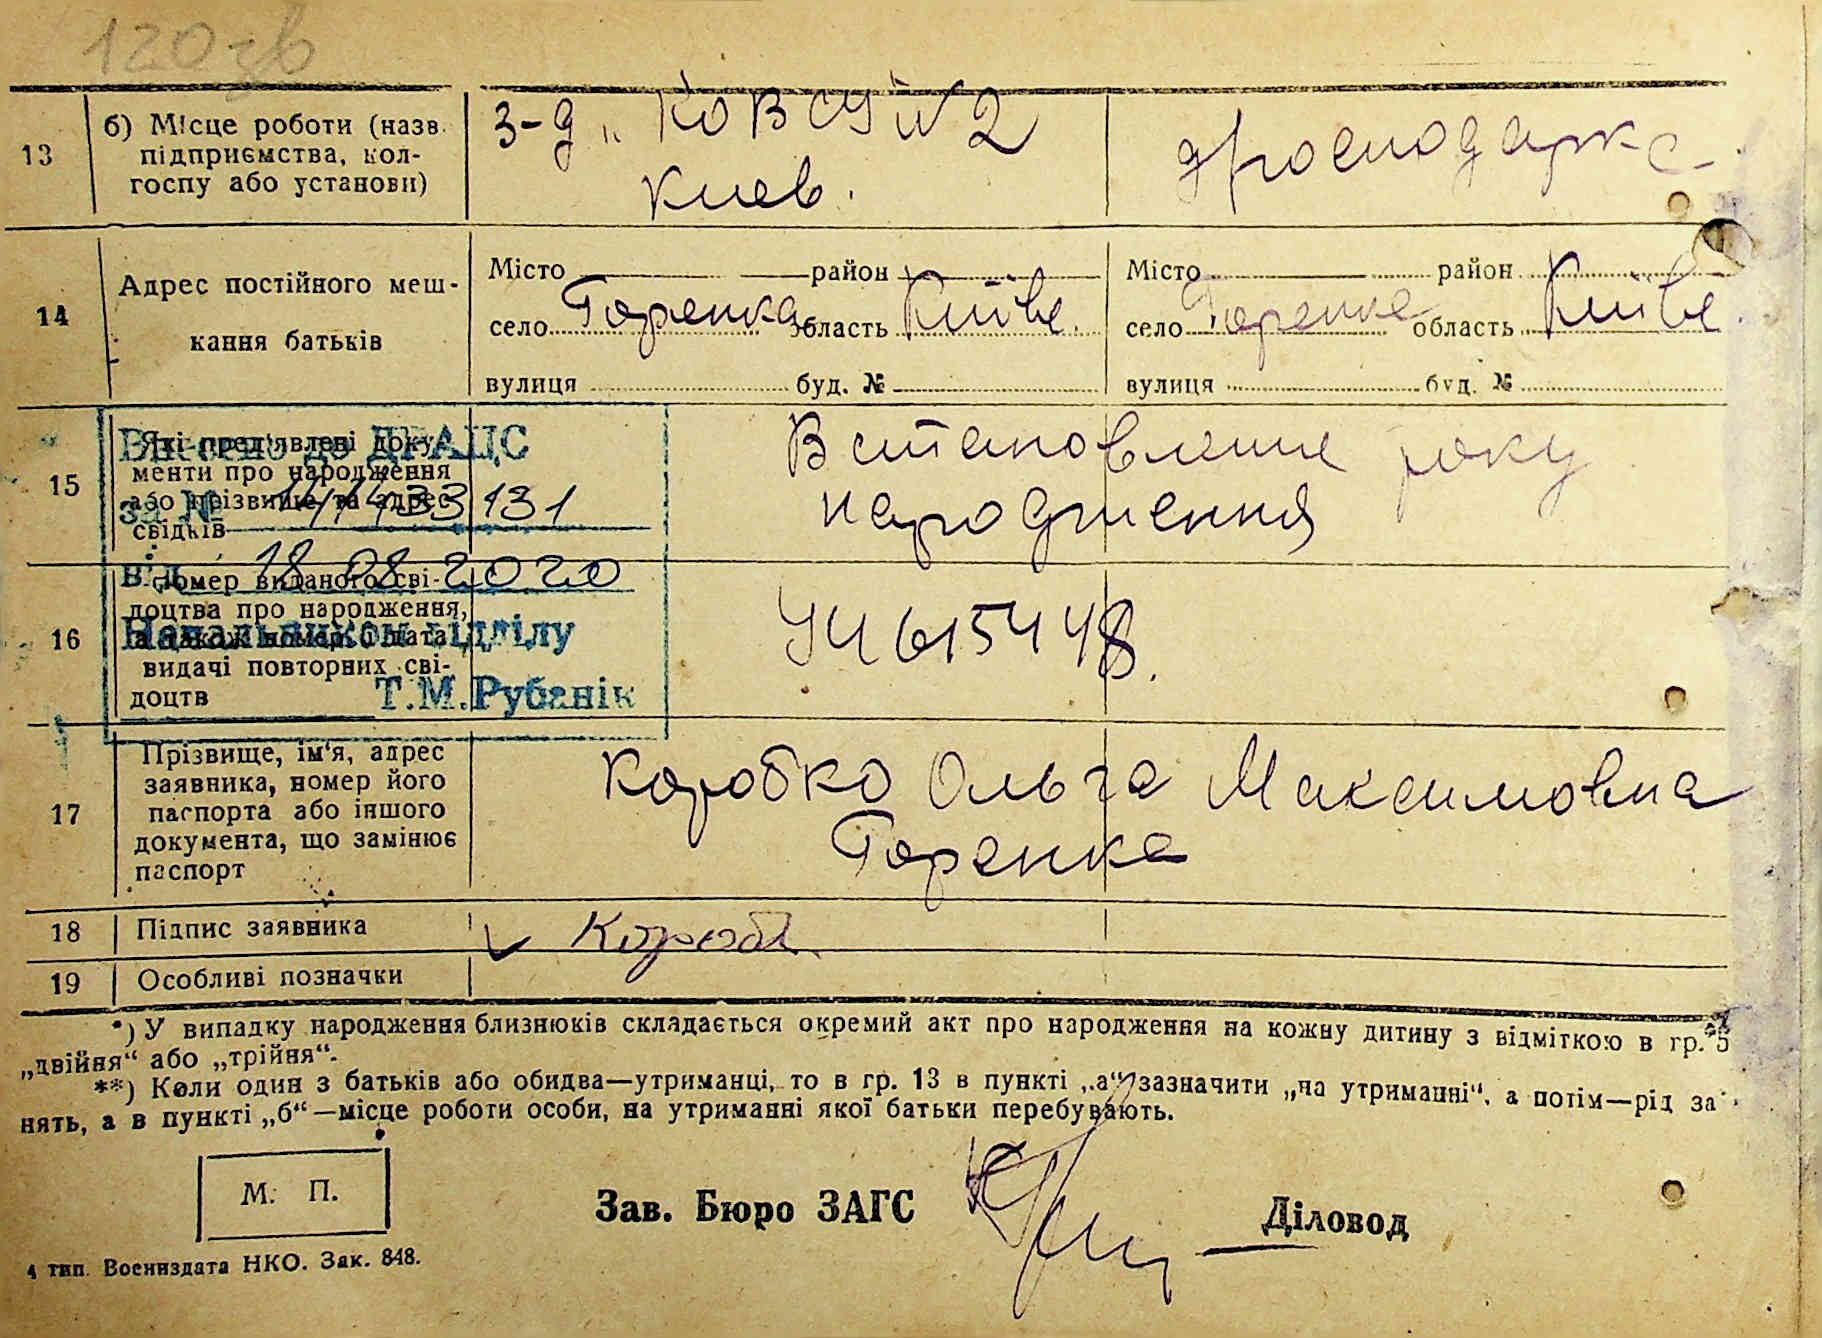 120зв
13
б) Місце роботи (назв.
підприємства, кол-
госпу або установи)
з-д „КОВСУ" №2
Киев.
14
Адрес постійного меш-
кання батьків
Місто район
село Горенка область Київс.
вулиця буд. №
Місто район
село Горенка область Київс.
вулиця буд. №
15
Які пред'явлені доку-
менти про народження
або прізвище та адрес
свідків
Встановлення року
народження
Внесено до ДРАЦС
за №
від 18 08 2020
Начальником відділу
Т.М.Рубанік
16
Номер виданого сві-
доцтва про народження,
а також номер і дата
видачі повторних сві-
доцтв
УЧ 615448.
17
Прізвище, ім'я, адрес
заявника, номер його
паспорта або іншого
документа, що замінює
паспорт
Коробко Ольга Максимовна
Горенка
18
Підпис заявника
19
Особливі позначки
*) У випадку народження близнюків складається окремий акт про народження на кожну дитину з відміткою в гр. 5
„двійня“ або „трійня“.
**) Коли один з батьків або обидва—утриманці, то в гр. 13 в пункті „а“ зазначити „на утриманні“, а потім—рід за-
нять, а в пункті „б“—місце роботи особи, на утриманні якої батьки перебувають.
М. П.
Зав. Бюро ЗАГС
Діловод
4 тип. Воениздата НКО. Зак. 848.